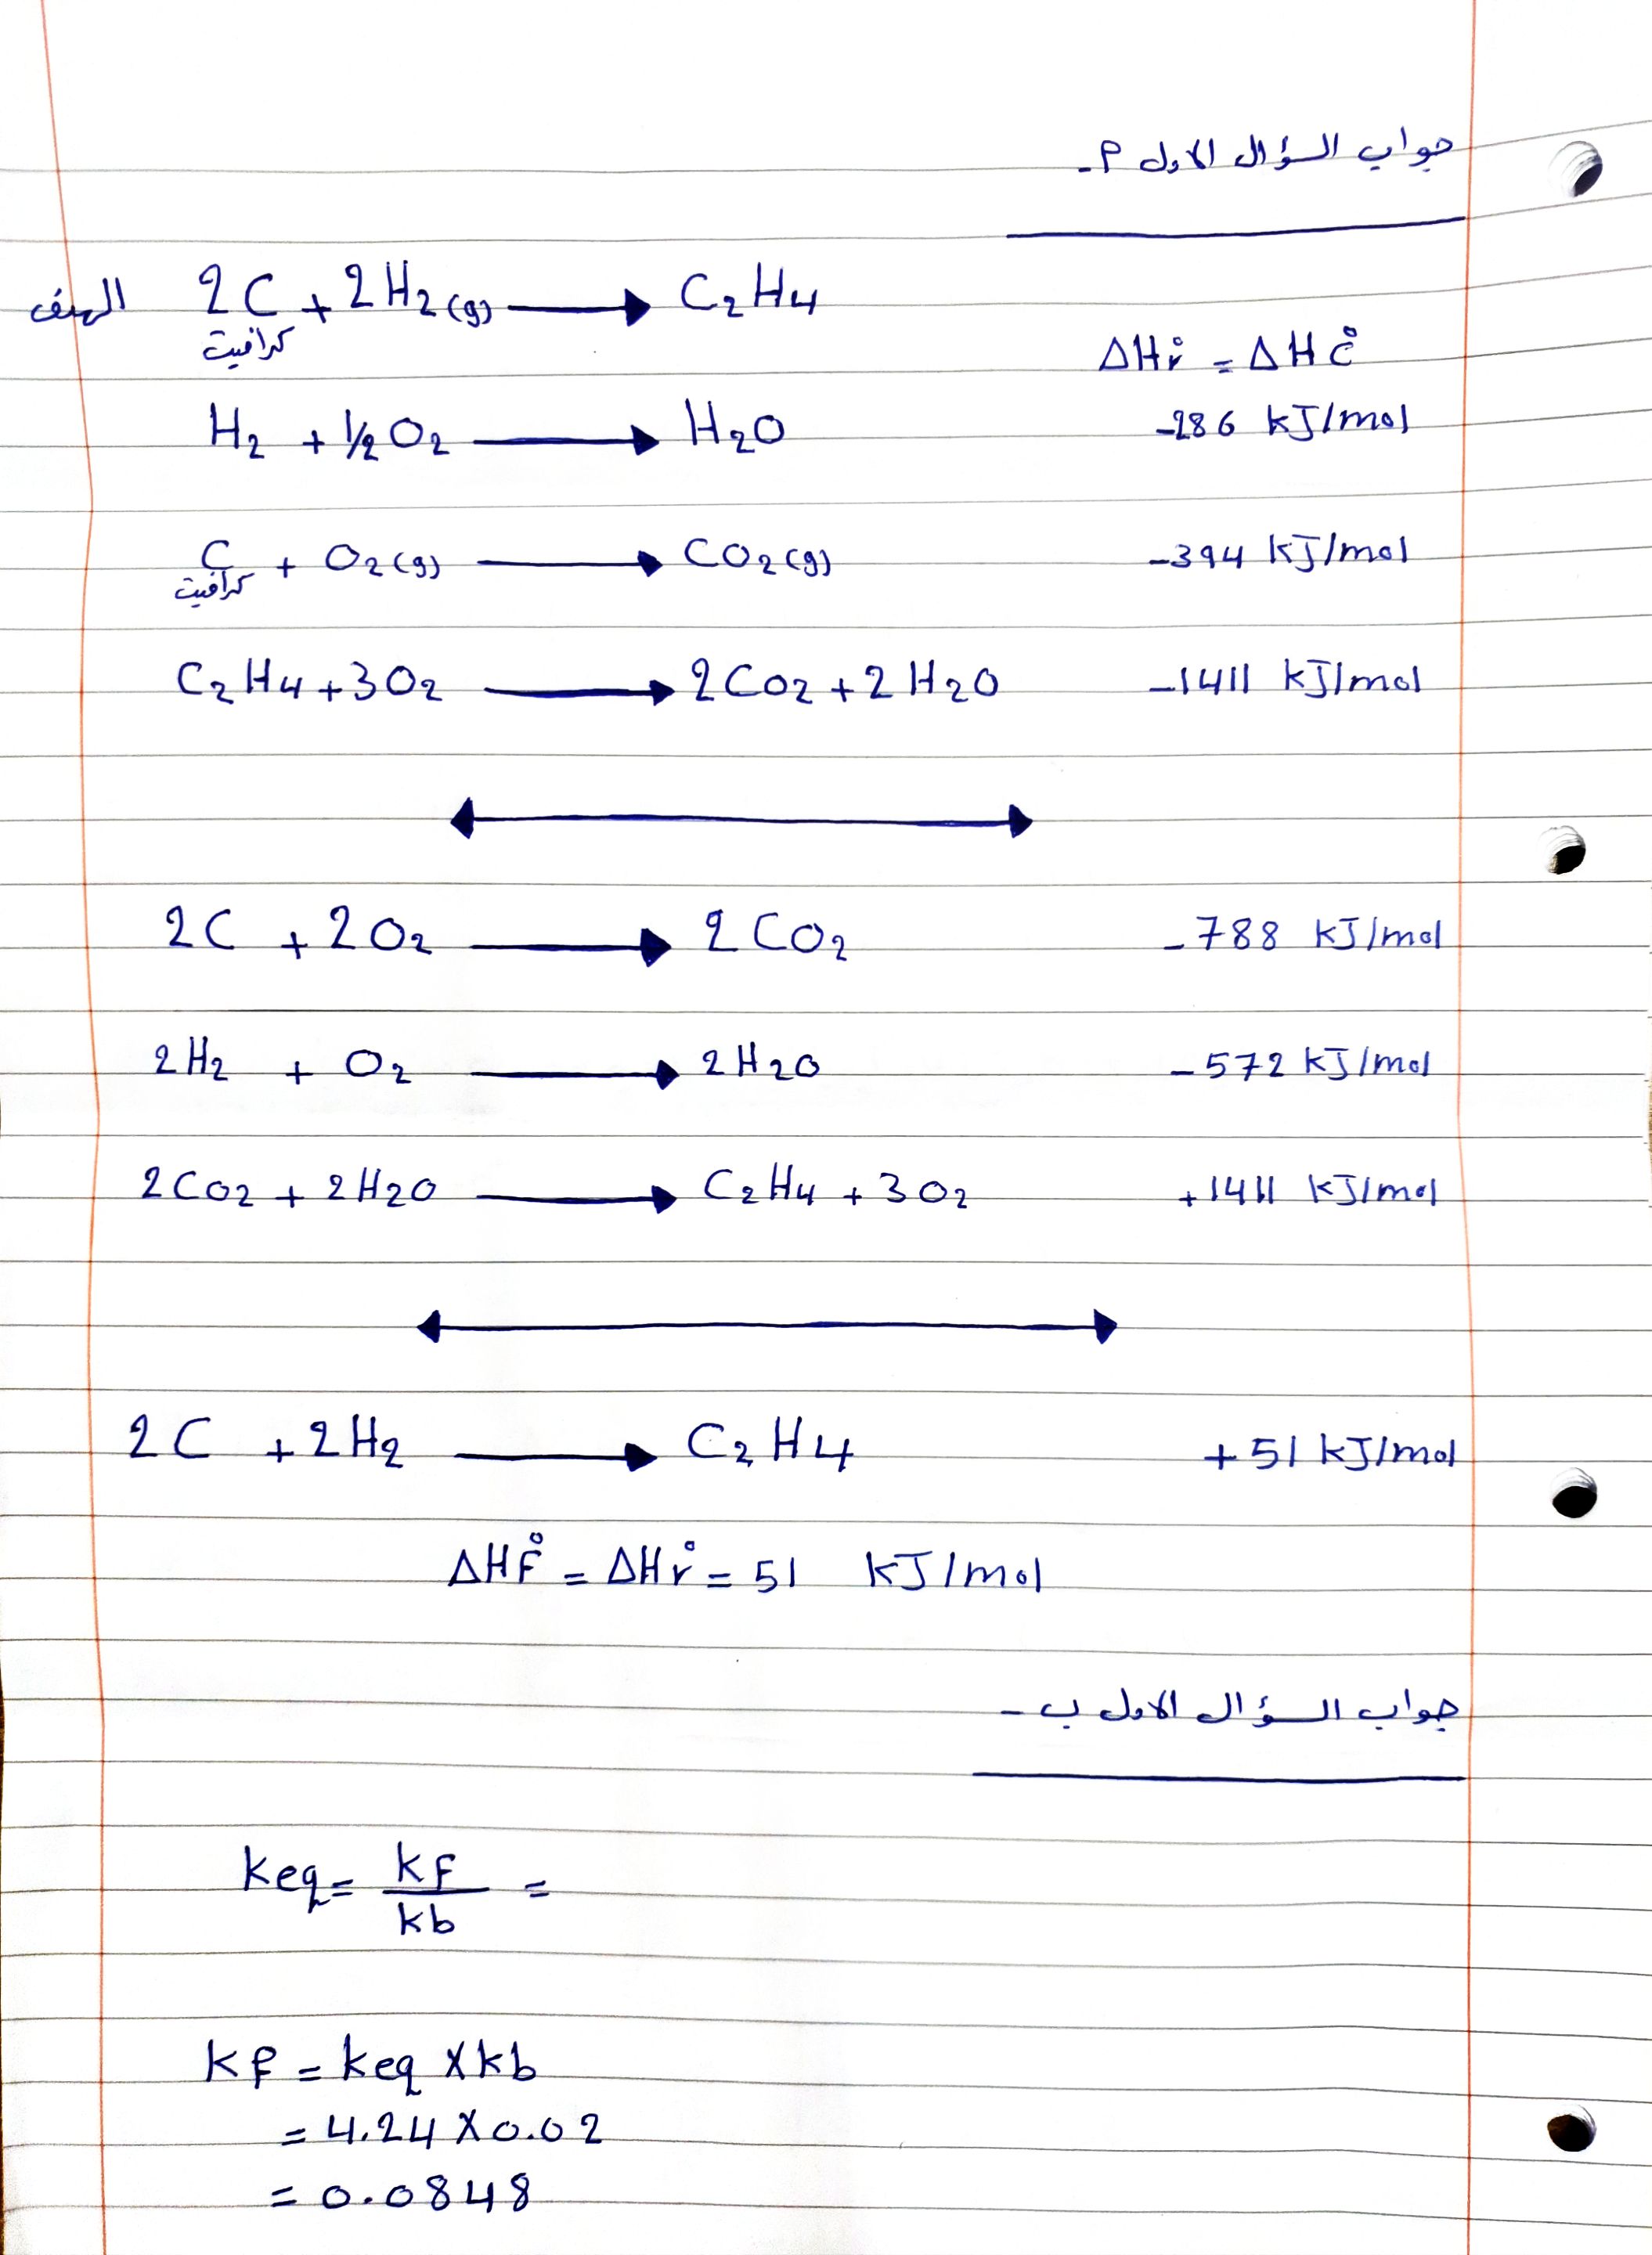 جواب السؤال الاول P-
الهدف 2C + 2H2(g) → C2H4
كرافيت
ΔHr° = ΔHc°
H2 + 1/2 O2 → H2O -286 kJ/mol
C + O2(g) → CO2(g) -394 kJ/mol
كرافيت
C2H4 + 3O2 → 2CO2 + 2H2O -1411 kJ/mol
2C + 2O2 → 2CO2 -788 kJ/mol
2H2 + O2 → 2H2O -572 kJ/mol
2CO2 + 2H2O → C2H4 + 3O2 +1411 kJ/mol
2C + 2H2 → C2H4 +51 kJ/mol
ΔHF° = ΔHr° = 51 kJ/mol
جواب السؤال الاول ب -
keq = kF/kb =
kf = keq X kb
= 4.24 X 0.02
= 0.0848